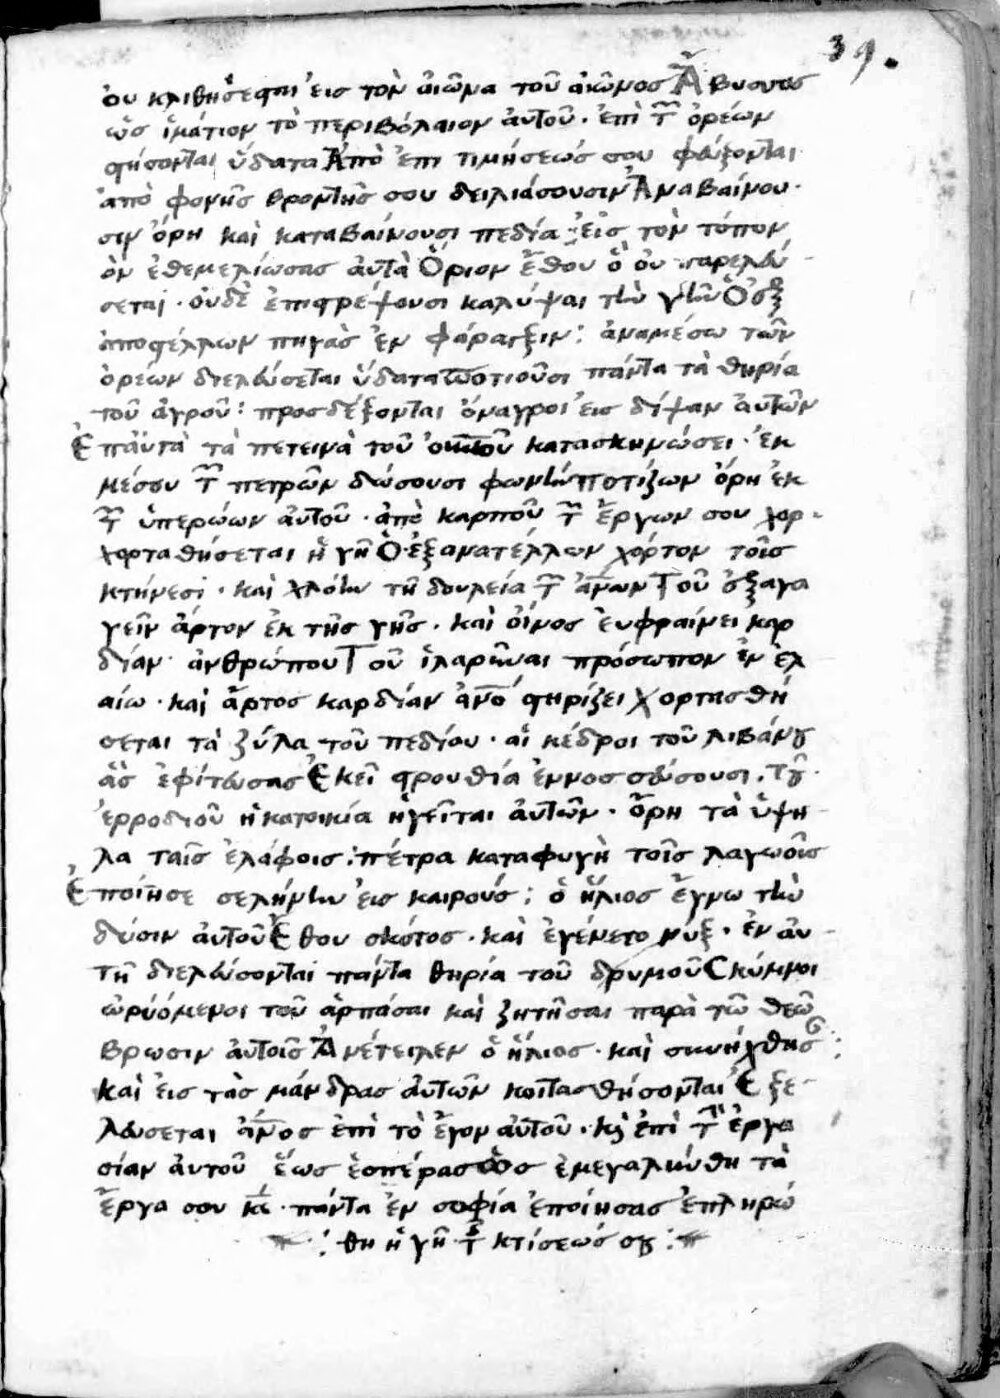 39.
ὀυ κλιθήσεται ἐις τὸν ἀιῶνα τοῦ ἀιῶνος Ἄβυσσος
ὡς ἱμάτιον τὸ περιβόλαιον ἀυτοῦ · ἐπὶ τῶν ὀρέων
στήσονται ὕδατα Ἀπὸ ἐπιτιμήσεώς σου φεύξονται
ἀπὸ φονῆς βροντῆς σου δειλιάσουσιν Ἀναβαίνου·
σιν ὄρη καὶ καταβαίνουσι πεδία : ἐις τὸν τόπον
ὃν ἐθεμελίωσας ἀυτὰ Ὅριον ἔθου ὃ ὀυ παρελεύ-
σεται · ὀυδὲ ἐπιστρέψουσι καλύψαι τὴν γῆν Ὁ ἐξ
ἀποστέλλων πηγὰς ἐν φάραγξιν : ἀναμέσω τῶν
ὀρέων διελεύσεται ὕδατα ποτιοῦσι πάντα τὰ θηρία
τοῦ ἀγροῦ : προσδέξονται ὄναγροι ἐις δίψαν ἀυτῶν
Ἐπ αὐτὰ τὰ πετεινὰ τοῦ ὀυνοῦ κατασκηνώσει · ἐκ
μέσου τῶν πετρῶν δώσουσι φωνὴν Ποτίζων ὄρη ἐκ
τῶν ὑπερώων ἀυτοῦ · ἀπὸ καρποῦ τῶν ἔργων σου χορ-
χορταθήσεται ἡ γῆ Ὁ ἐξανατέλλων χόρτον τοῖς
κτήνεσι · καὶ χλόην τῇ δουλεία τῶν ἀνων Τοῦ ἐξαγα
γεῖν ἄρτον ἐκ τῆς γῆς · καὶ ὀίνος ἐυφραίνει καρ
δίαν ἀνθρώπου Τοῦ ἱλαρῦναι πρόσωπον ἐν ἐλ
αίω · καὶ ἄρτος καρδίαν ἀνου στηρίζει Χορτασθή
σεται τὰ ξύλα τοῦ πεδίου · αἱ κέδροι τοῦ λιβάνου
ἃς ἐφίτευσας Ἐκεῖ στρουθία ἐννοσσεύσουσι . τοῦ
ἐρροδιοῦ ἡ κατοικία ἡγεῖται ἀυτῶν · ὄρη τὰ ὑψη-
λα ταῖς ἐλάφοις : πέτρα καταφυγὴ τοῖς λαγωοῖς
Ἐποίησε σελήνην ἐις καιρούς : ὁ ἥλιος ἔγνω τὴν
δύσιν ἀυτοῦ Ἔθου σκότος · καὶ ἐγένετο νύξ · ἐν ἀυ-
τῇ διελεύσονται πάντα θηρία τοῦ δρυμοῦ Σκύμνοι
ὠρυόμενοι τοῦ ἁρπάσαι καὶ ζητῆσαι παρὰ τῶ θεῶ
βρωσιν ἀυτοῖς Ἀνέτειλεν ὁ ἥλιος · καὶ συνήχθησ :
καὶ ἐις τὰς μάνδρας ἀυτῶν κοιτασθήσονται Ἐξε-
λεύσεται ἄνος ἐπὶ τὸ ἔγον ἀυτοῦ · κὶ ἐπὶ τὴν ἐργα
σίαν ἀυτοῦ ἕως ἑσπέρας Ὡς ἐμεγαλύνθη τὰ
ἔργα σου κε · πάντα ἐν σοφία ἐποίησας ἐπληρώ
: θη ἡ γῆ τῆς κτίσεώς σου :